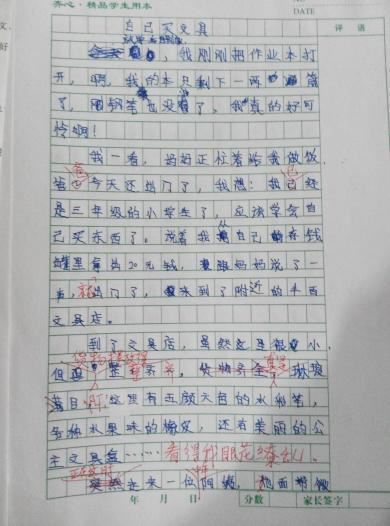 齐心·精品学生用本
DATE
评语
自己买文具
，我刚刚把作业本打
开，啊，我的本只剩下一两篇
了，钢笔也没了，我真的好可
怜啊！
我一看，妈妈正忙着给我做饭，
爸爸今天还出门了，我想：我已经
是三年级的小学生了，应该学会自
己买东西了。说着我从自己存钱
罐里拿出20元钱，跟妈妈说了一
声，就出门了，来到了附近的
文具店。
到了文具店，虽然这里很小，
但
目，这里有五颜六色的水彩笔，
各种水果味的橡皮，还有美丽的公
主文具盒……看得我眼花缭乱。
正在这时
突然走来一位阿姨，
年 月 日 分数 家长签字